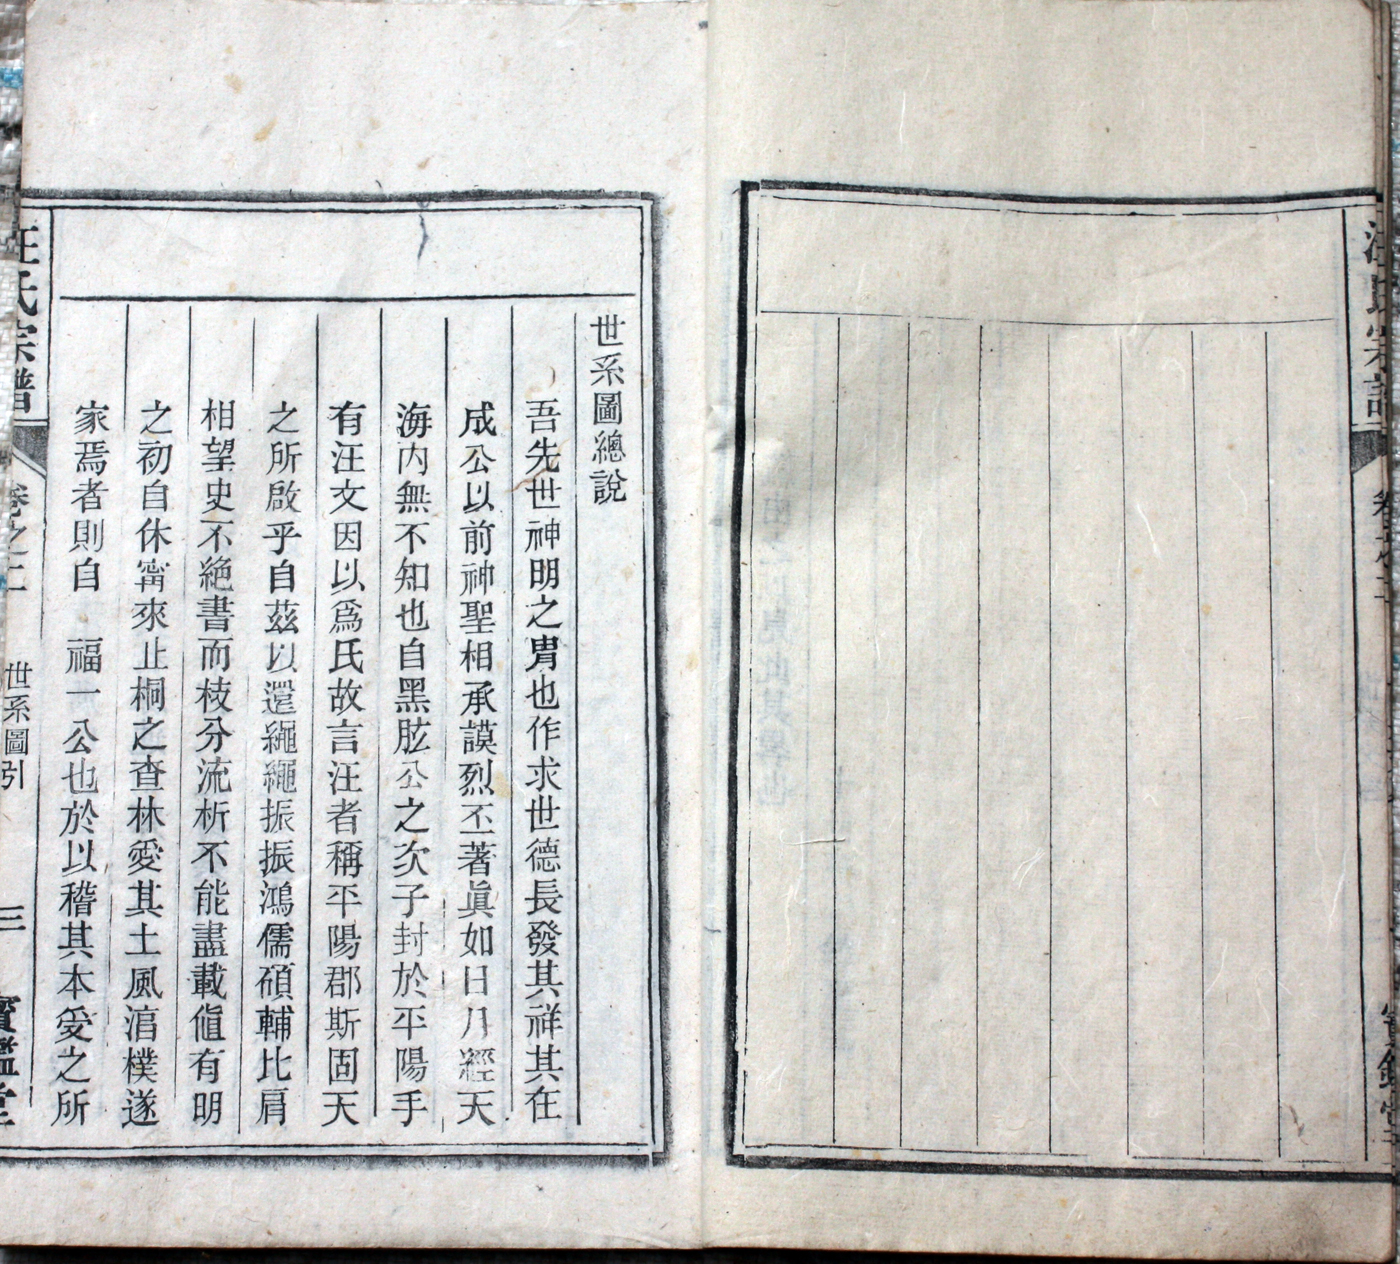 汪氏宗譜
世系圖總說
吾先世神明之胄也作求世德長發其祥其在
成公以前神聖相承謨烈丕著眞如日月經天
海内無不知也自黑肱公之次子封於平陽手
有汪文因以爲氏故言汪者稱平陽郡斯固天
之所啟乎自茲以還繩繩振振鴻儒碩輔比肩
相望史不絕書而枝分流析不能盡載値有明
之初自休甯來止桐之查林愛其土風涫樸遂
家焉者則自 福一公也於以稽其本爰之所
汪氏宗譜
卷之二
世系圖引
三
寶鑑堂